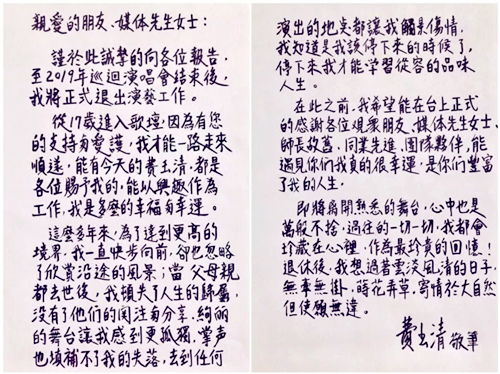 親愛的朋友、媒体先生女士:
謹於此誠摯的向各位報告,
至2019年巡迴演唱會結束後,
我將正式退出演藝工作。
從17歲進入歌壇,因為有您
的支持與愛護,我才能一路走來
順遂,能有今天的費玉清,都是
各位賜予我的,能以興趣作為
工作,我是多麼的幸福与幸運。
這麼多年來,為了達到更高的
境界,我一直快步向前,卻也忽略
了欣賞沿途的風景;當父母親
都去世後,我頓失了人生的歸屬,
沒有了他們的関注与分享,絢麗
的舞台讓我感到更孤獨,掌声
也填補不了我的失落,去到任何
演出的地点都讓我觸景傷情,
我知道是我該停下來的時候了,
停下來我才能学習從容的品味
人生。
在此之前,我希望能在台上正式
的感謝各位観衆朋友、媒体先生女士、
師長故舊、同業先進、團隊夥伴,能
遇見你們我真的很幸運,是你們豐富
了我的人生。
即將離開熟悉的舞台,心中也是
萬般不捨,過往的一切一切,我都會
珍藏在心裡,作為最珍貴的回憶!
退休後,我想過着雲淡風清的日子,
無事無掛,蒔花弄草,寄情於大自然
但使願無違。
費玉清 敬筆